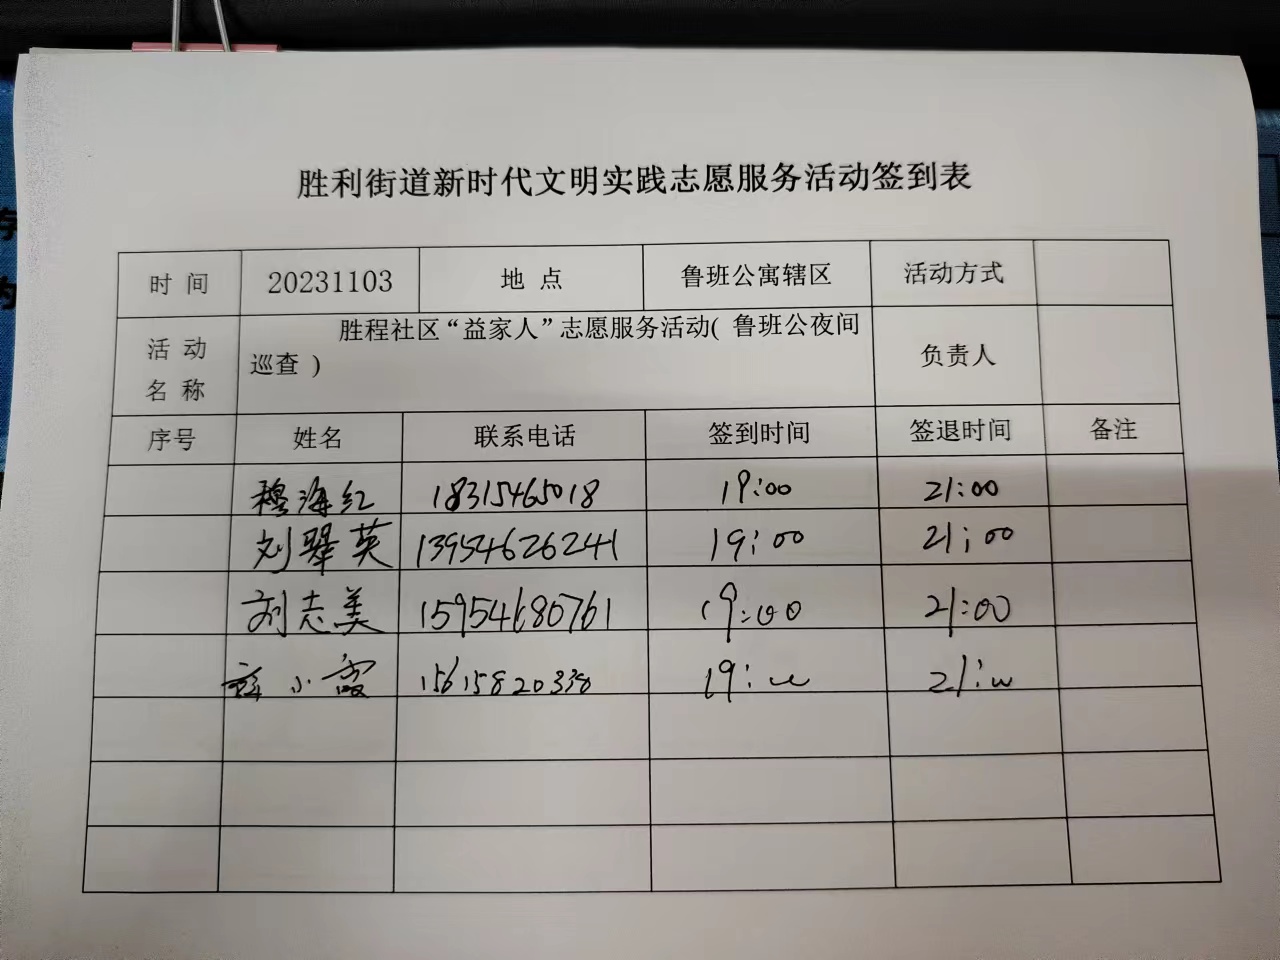 胜利街道新时代文明实践志愿服务活动签到表
时 间 20231103 地 点 鲁班公寓辖区 活动方式
活 动 名 称 胜程社区“益家人”志愿服务活动( 鲁班公夜间
巡查 ) 负责人
序号 姓名 联系电话 签到时间 签退时间 备注
穆海红 18315465018 19:00 21:00
刘翠英 13954626241 19:00 21:00
刘志美 15954680761 19:00 21:00
小霞 15615820338 19:00 21:00